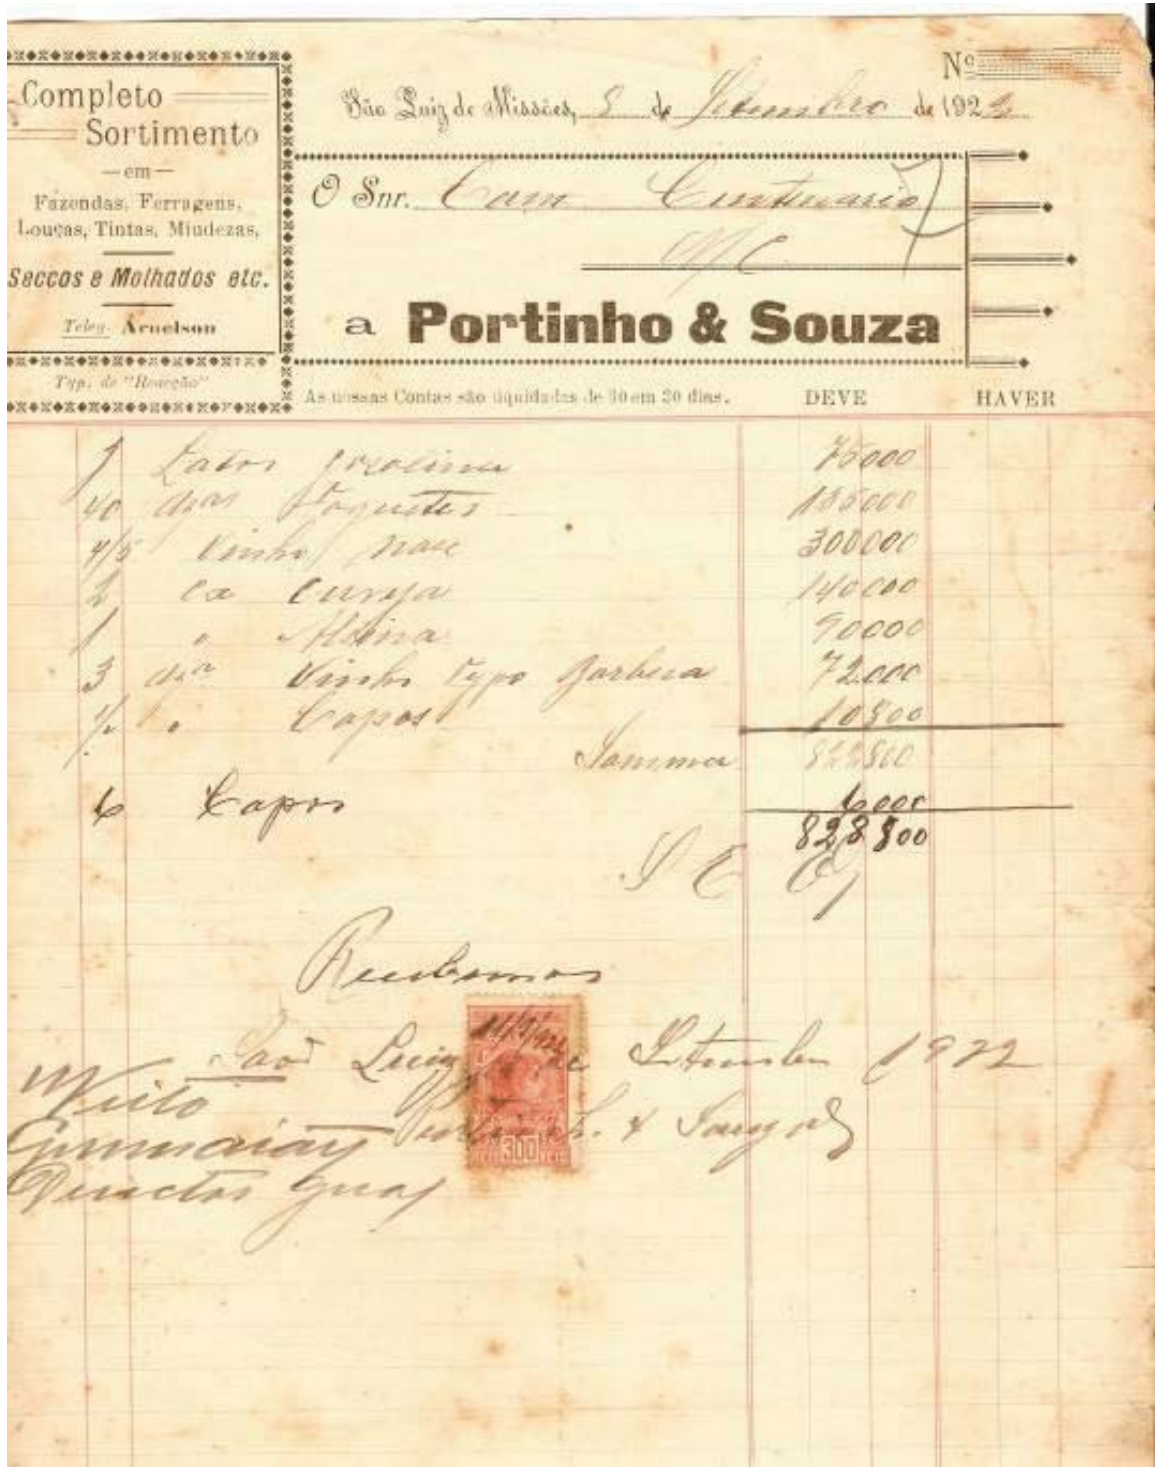 Nº
Completo
Sortimento
— em —
Fazendas, Ferragens,
Louças, Tintas, Miudezas,
Seccos e Molhados etc.
Teleg. Arnelson
Typ. de "Reacção"
São Luiz de Missões, 8 de Setembro de 1922
O Snr. Com Centenario
N/C
a Portinho & Souza
As nossas Contas são liquidadas de 30 em 30 dias.
DEVE HAVER
Latas gazolina 75000
40 dzas Foguetes 135000
4/5 Vinho nac 300000
2 ca cerveja 140000
1 " 90000
3 dza Vinho Typo Barbera 72000
1/2 " Copos 10800
Somma 822800
6 Copos 6000
828800
S E O
Recebemos
São Luiz Setembro 1922
Portinho & Souza
Visto
Director Geral
300